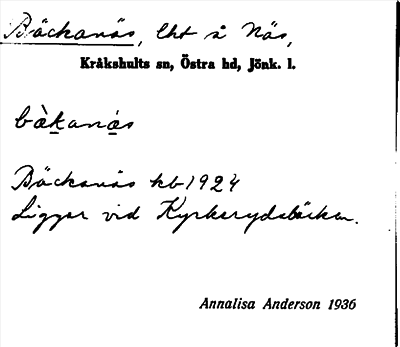 Bäckanäs, lht å Näs,
Kråkshults sn, Östra hd, Jönk. l.
bàkanäs
Bäckanäs kb 1924
Ligger vid Kyrkerydsbäcken.
Annalisa Anderson 1936